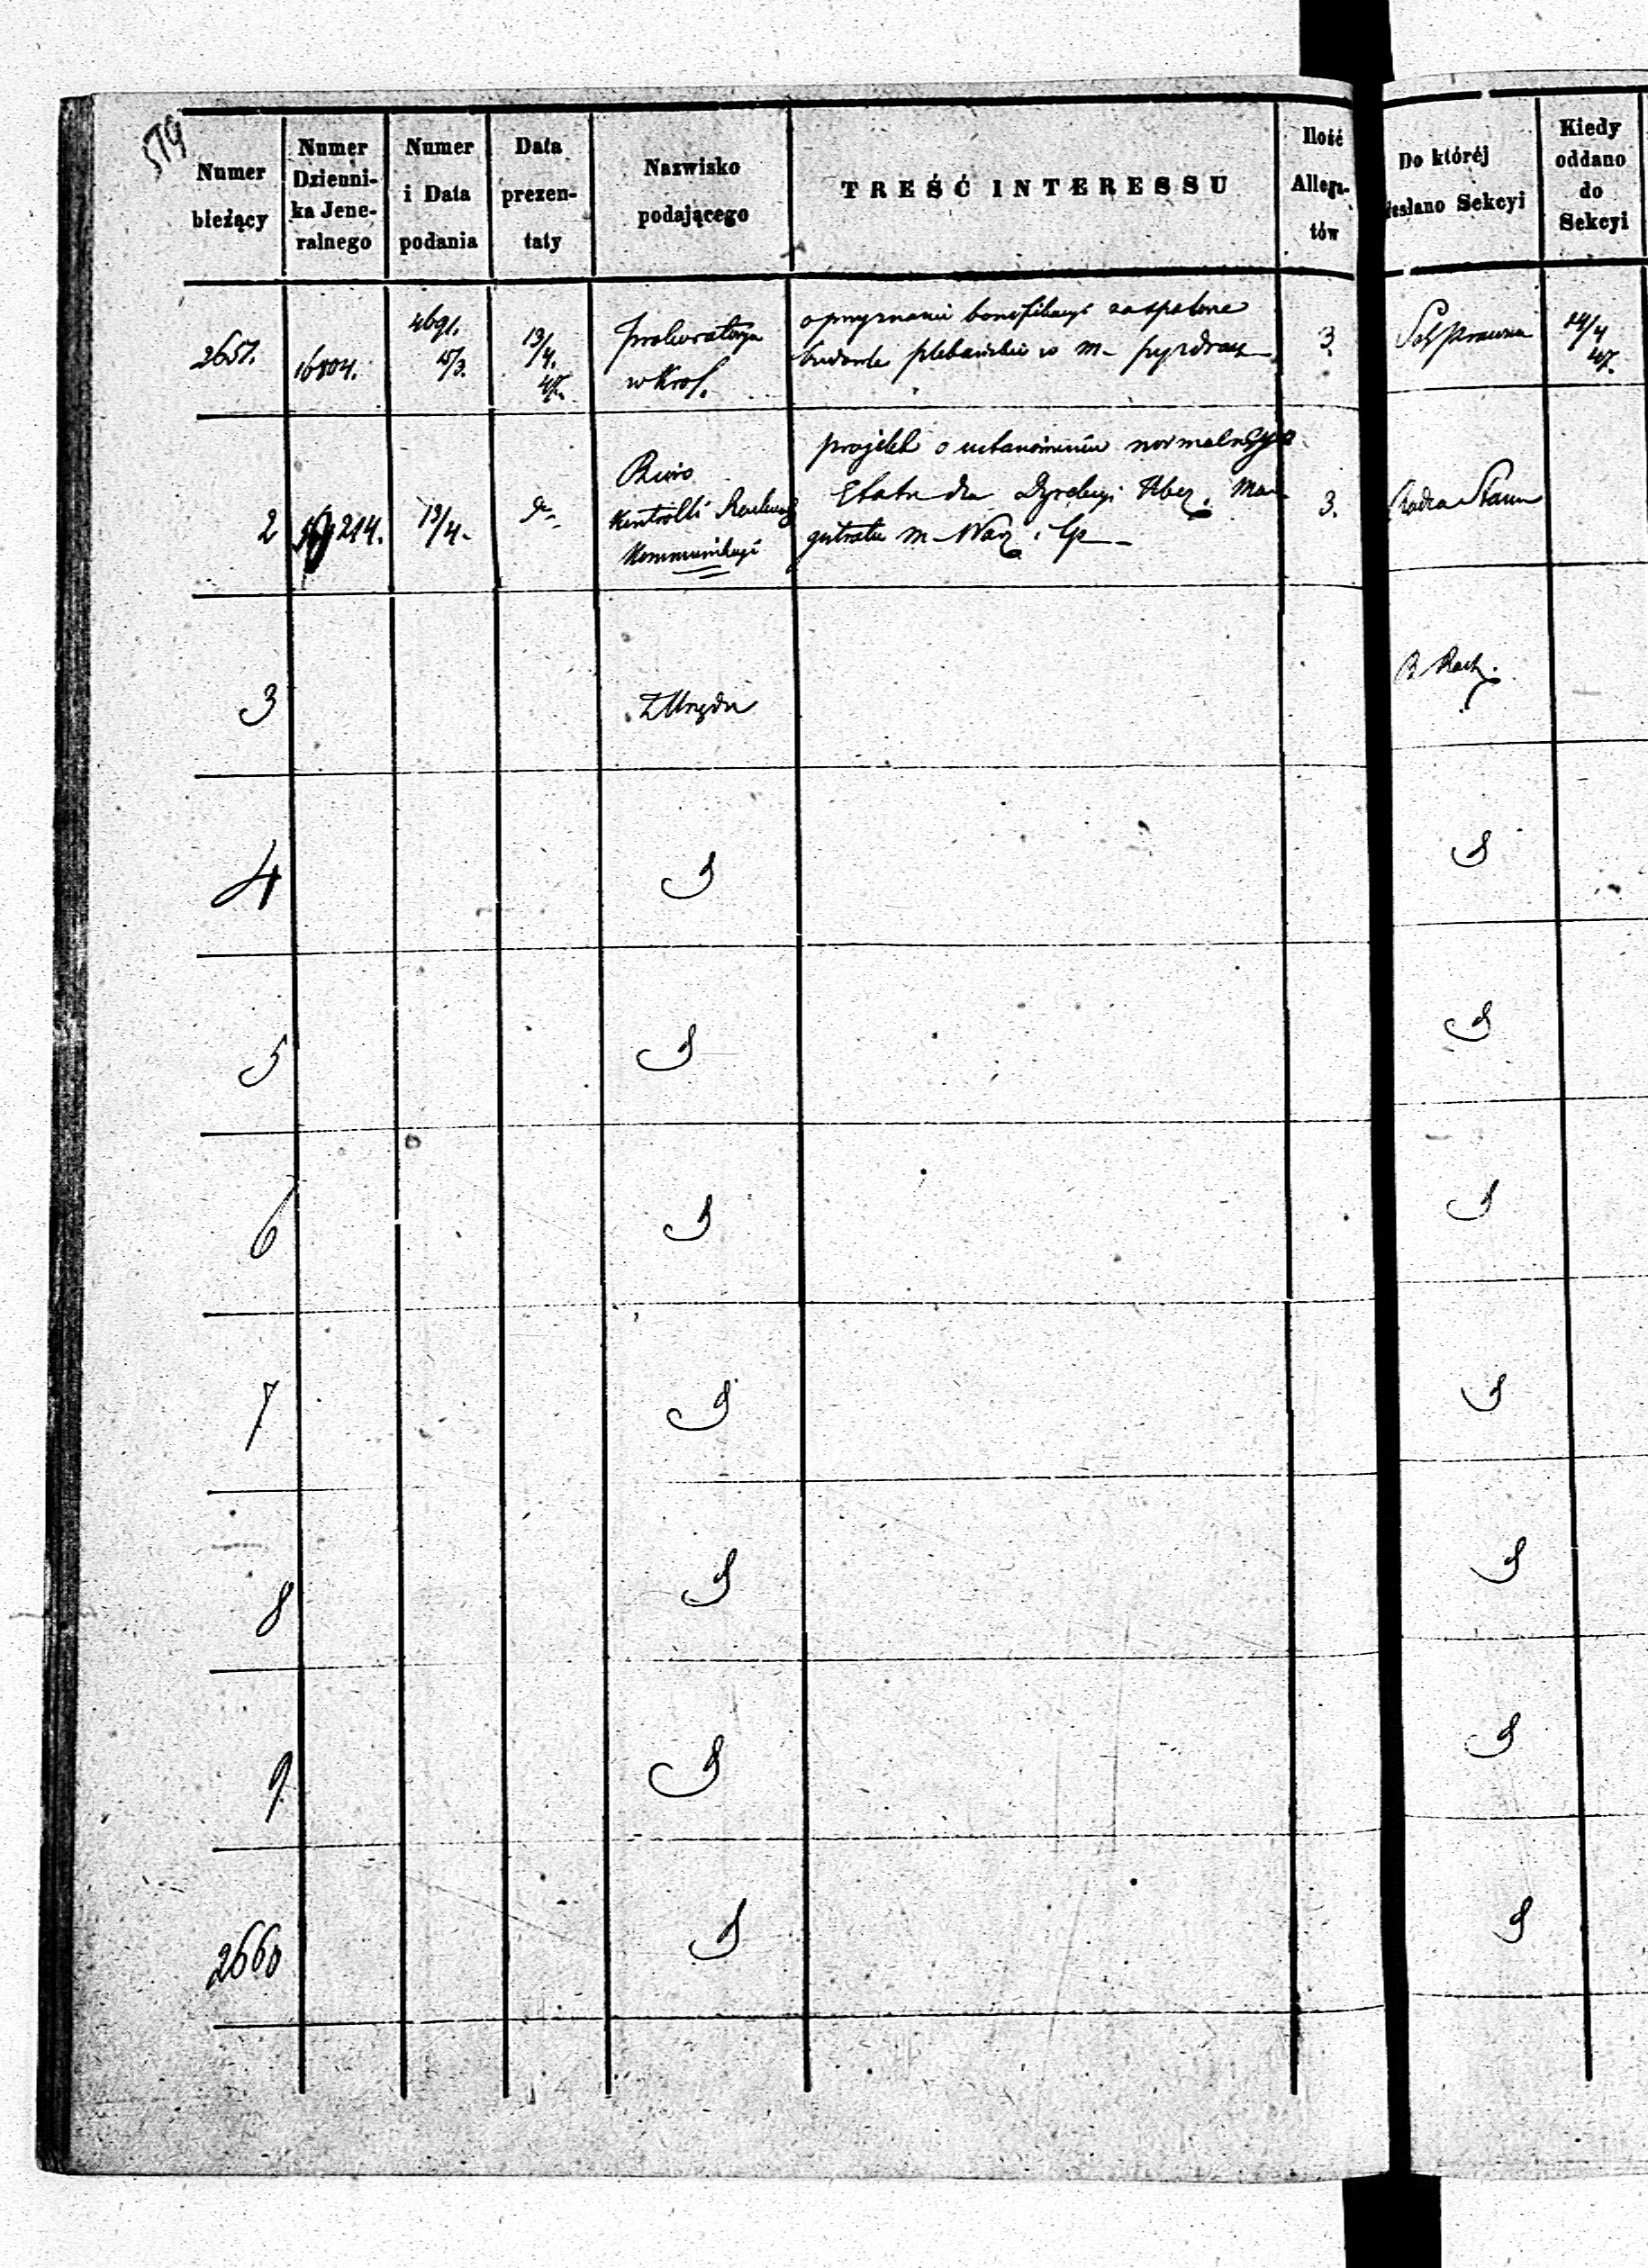 579
Numer
bieżący
Numer
Dzienni-
ka Jene-
ralnego
Numer
i Data
podania
Data
prezen-
taty
Nazwisko
podającego
TREŚĆ INTERESSU
Ilość
Allega-
tów
Do któréj
Sekcyi
Kiedy
oddano
do
Sekcyi
2651.
16804.
4691.
15/3.
13/4.
47.
Prokuratorya
w Krol.
o przyznanie bonifikacyi za spalone
plebańskie w m.
3.
14/4
47.
2
214.
13/4.
Biuro
Kontrolli
Kommunikacyi
projekt o ustanowieniu normalnego
Etatu dla Dyrekcyi Ubez. Ma-
gistratu m. Warz. i
3.
Radca Stanu
3
Z Urzędu
4
5
6
7
8
9
2660